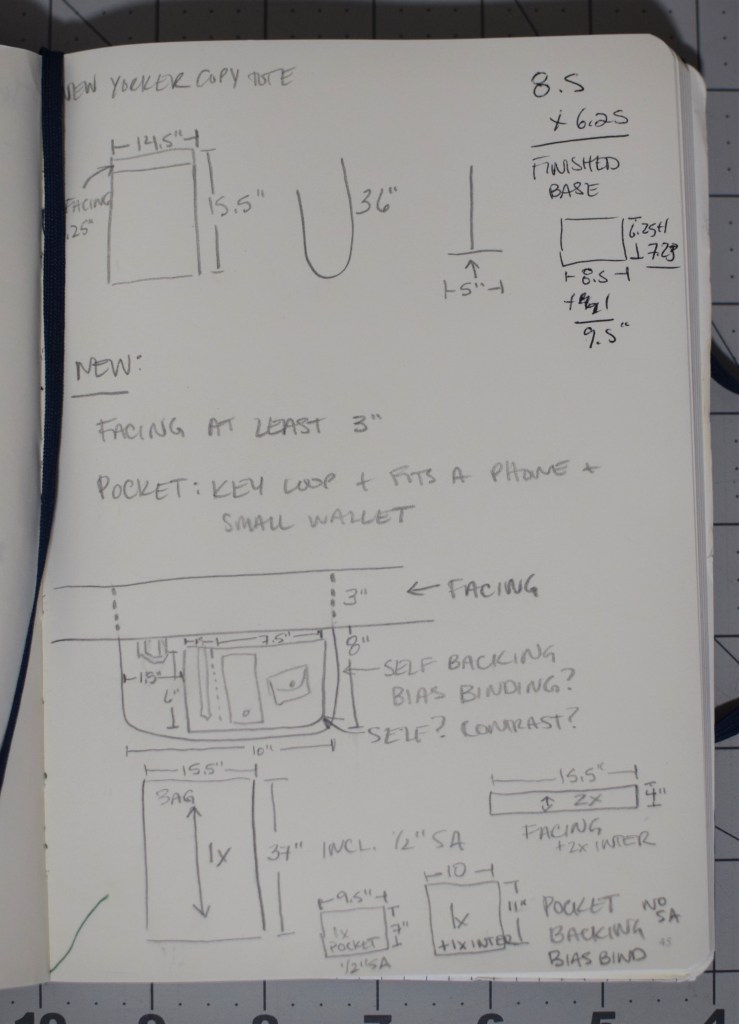 NEW YORKER COPY TOTE
8.5
x 6.25
FINISHED
BASE
14.5"
FACING
.25"
15.5"
36"
5"
6.25+1
7.25
8.5
+ 1
9.5"
NEW:
FACING AT LEAST 3"
POCKET: KEY LOOP + FITS A PHONE +
SMALL WALLET
3"
← FACING
7.5"
8"
1.5"
6"
← SELF BACKING
BIAS BINDING?
SELF? CONTRAST?
10"
15.5"
BAG
1X
37" INCL. 1/2" SA
15.5"
2X
4"
FACING
+2X INTER
9.5"
1X
POCKET
7"
1/2" SA
10
1X
+1X INTER
11"
POCKET
BACKING
BIAS BIND
NO
SA
10 9 8 7 6 5 4